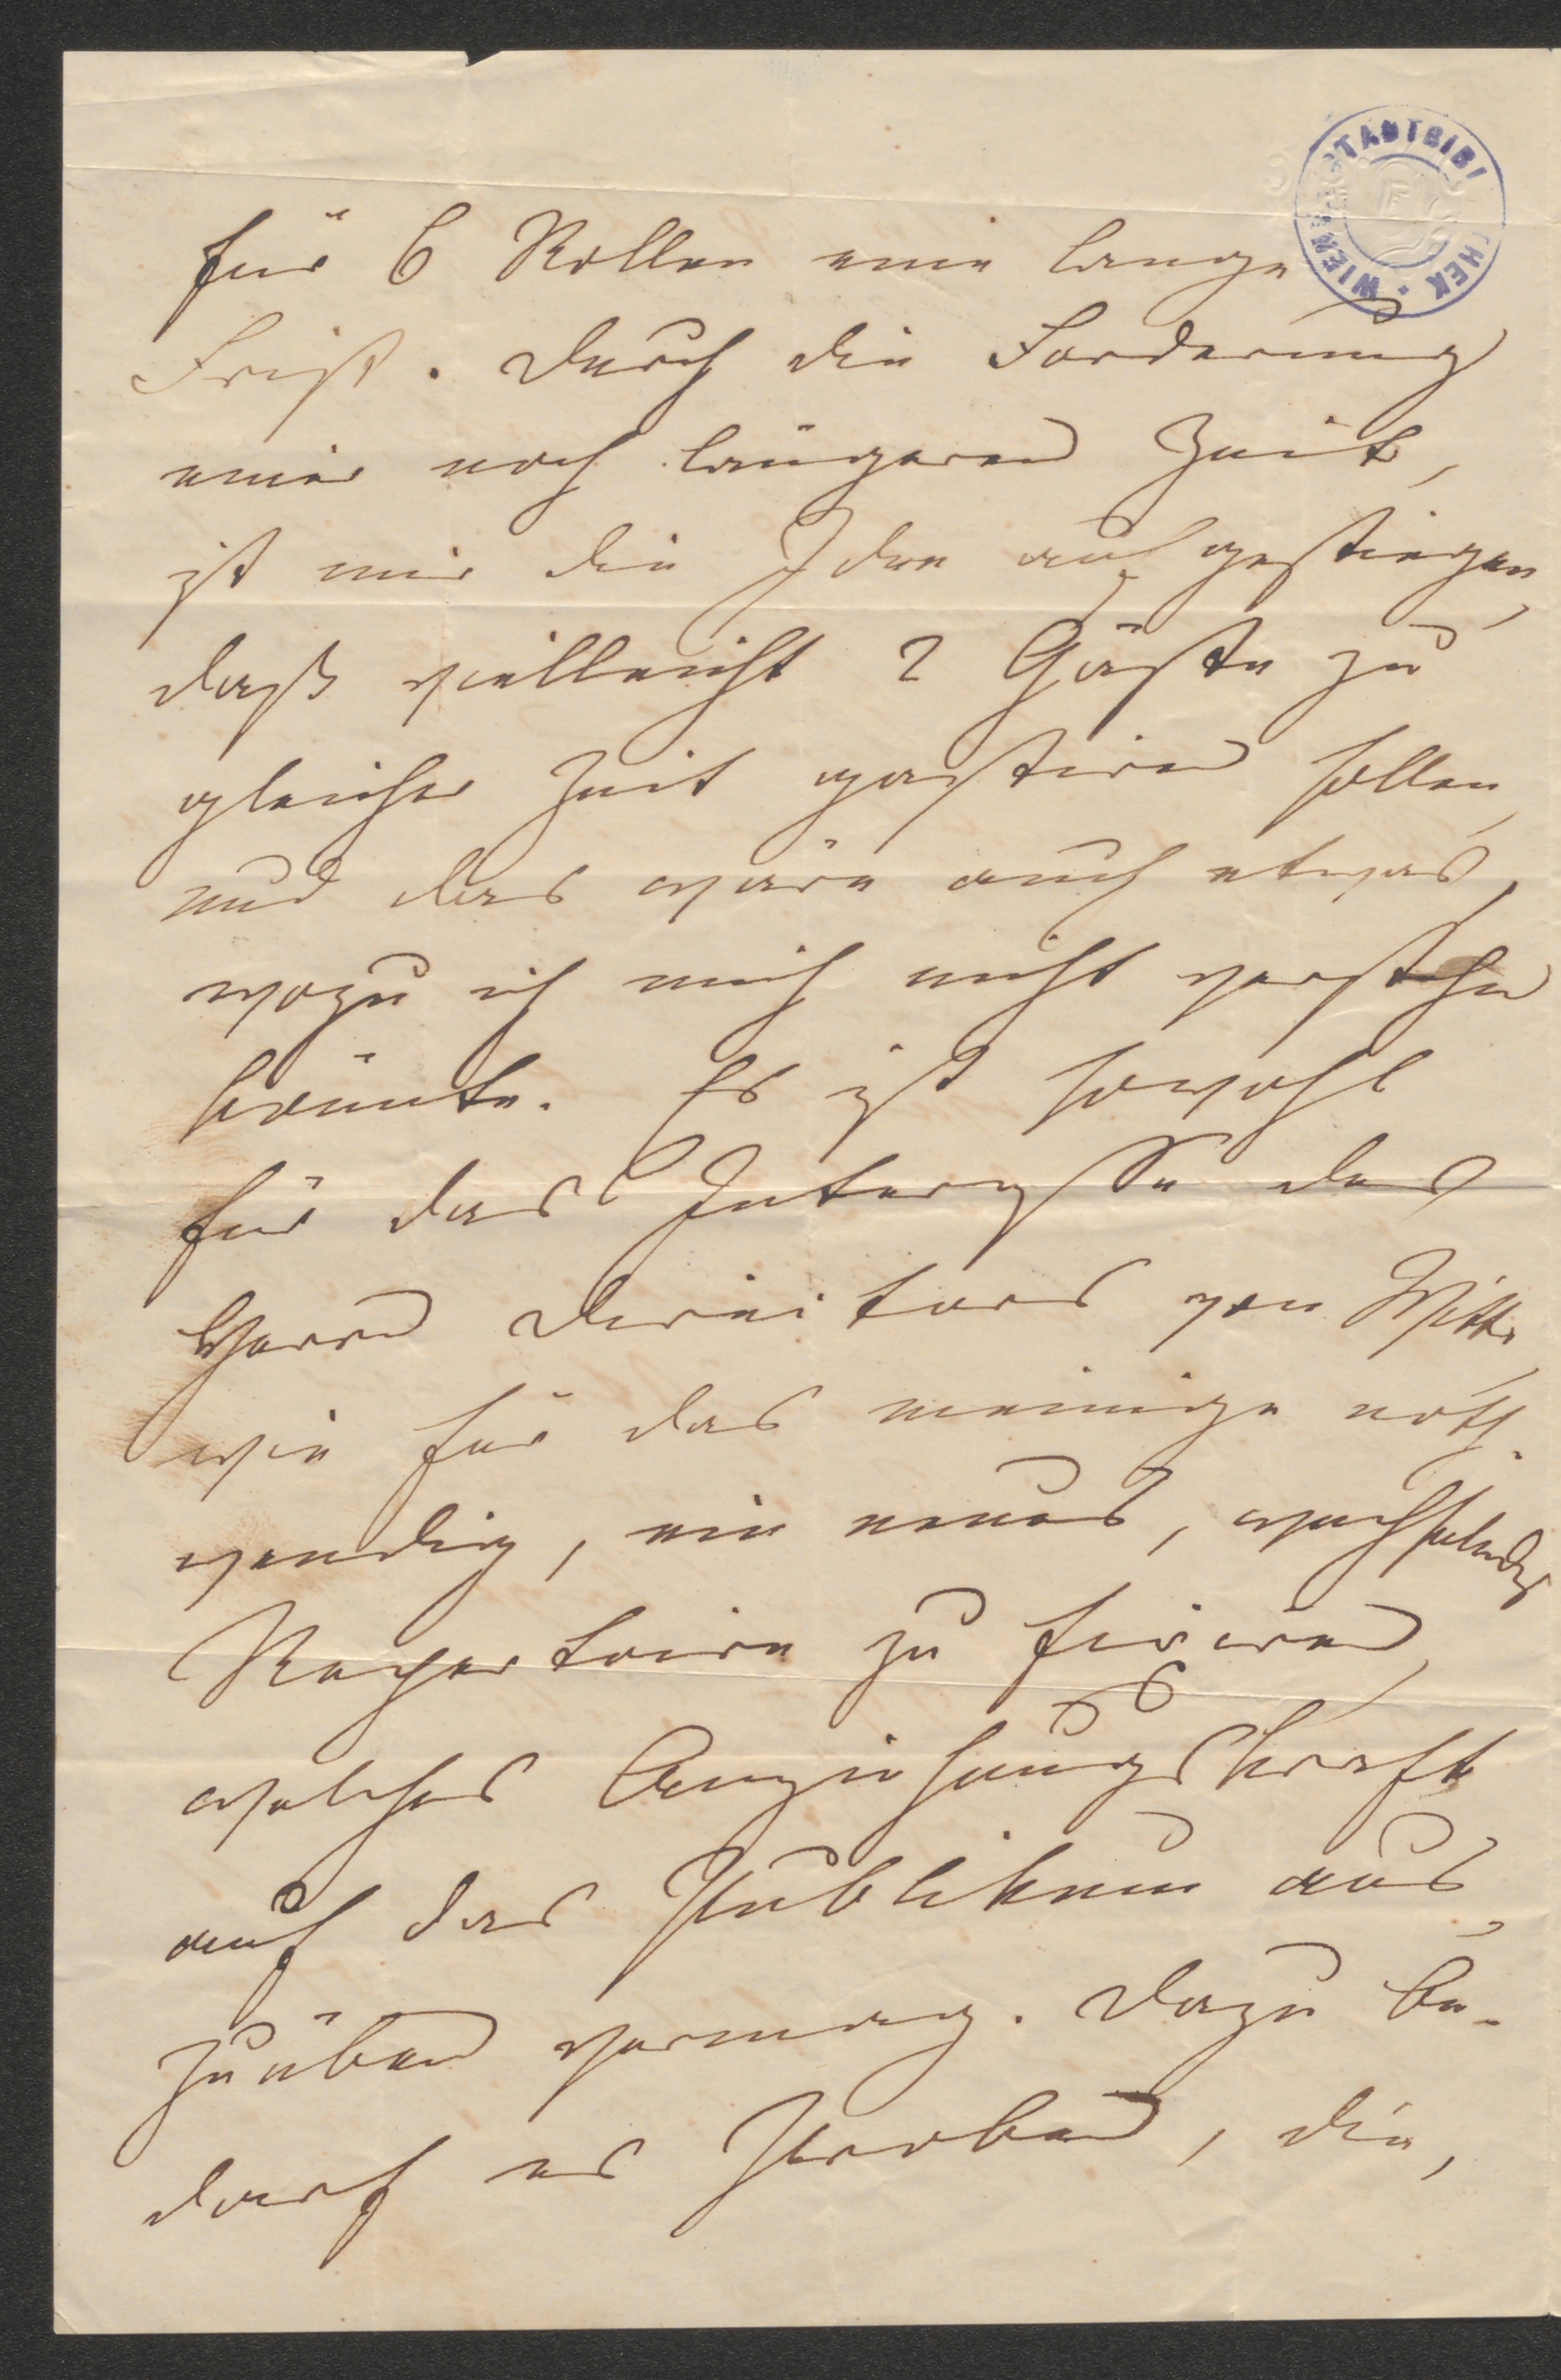 für 6 Rollen eine lange
Frist. Durch die Forderung
einer noch längeren Zeit,
ist mir die Idee aufgestiegen,
daß vielleicht 2 Gäste zu
gleicher Zeit gastiren sollen,
und das wäre auch etwas,
wozu ich mich nicht verstehen
könnte. Es ist sowohl
für das Interesse des
Herrn Direktors von Witte,
wie für das meinige noth-
wendig, ein neues, wechselndes
Repertoire zu fixiren,
welches Anziehungskraft
auf das Publikum aus
zuüben vermag. Dazu be-
darf es Proben, die,
WIENER STADTBIBLIOTHEK